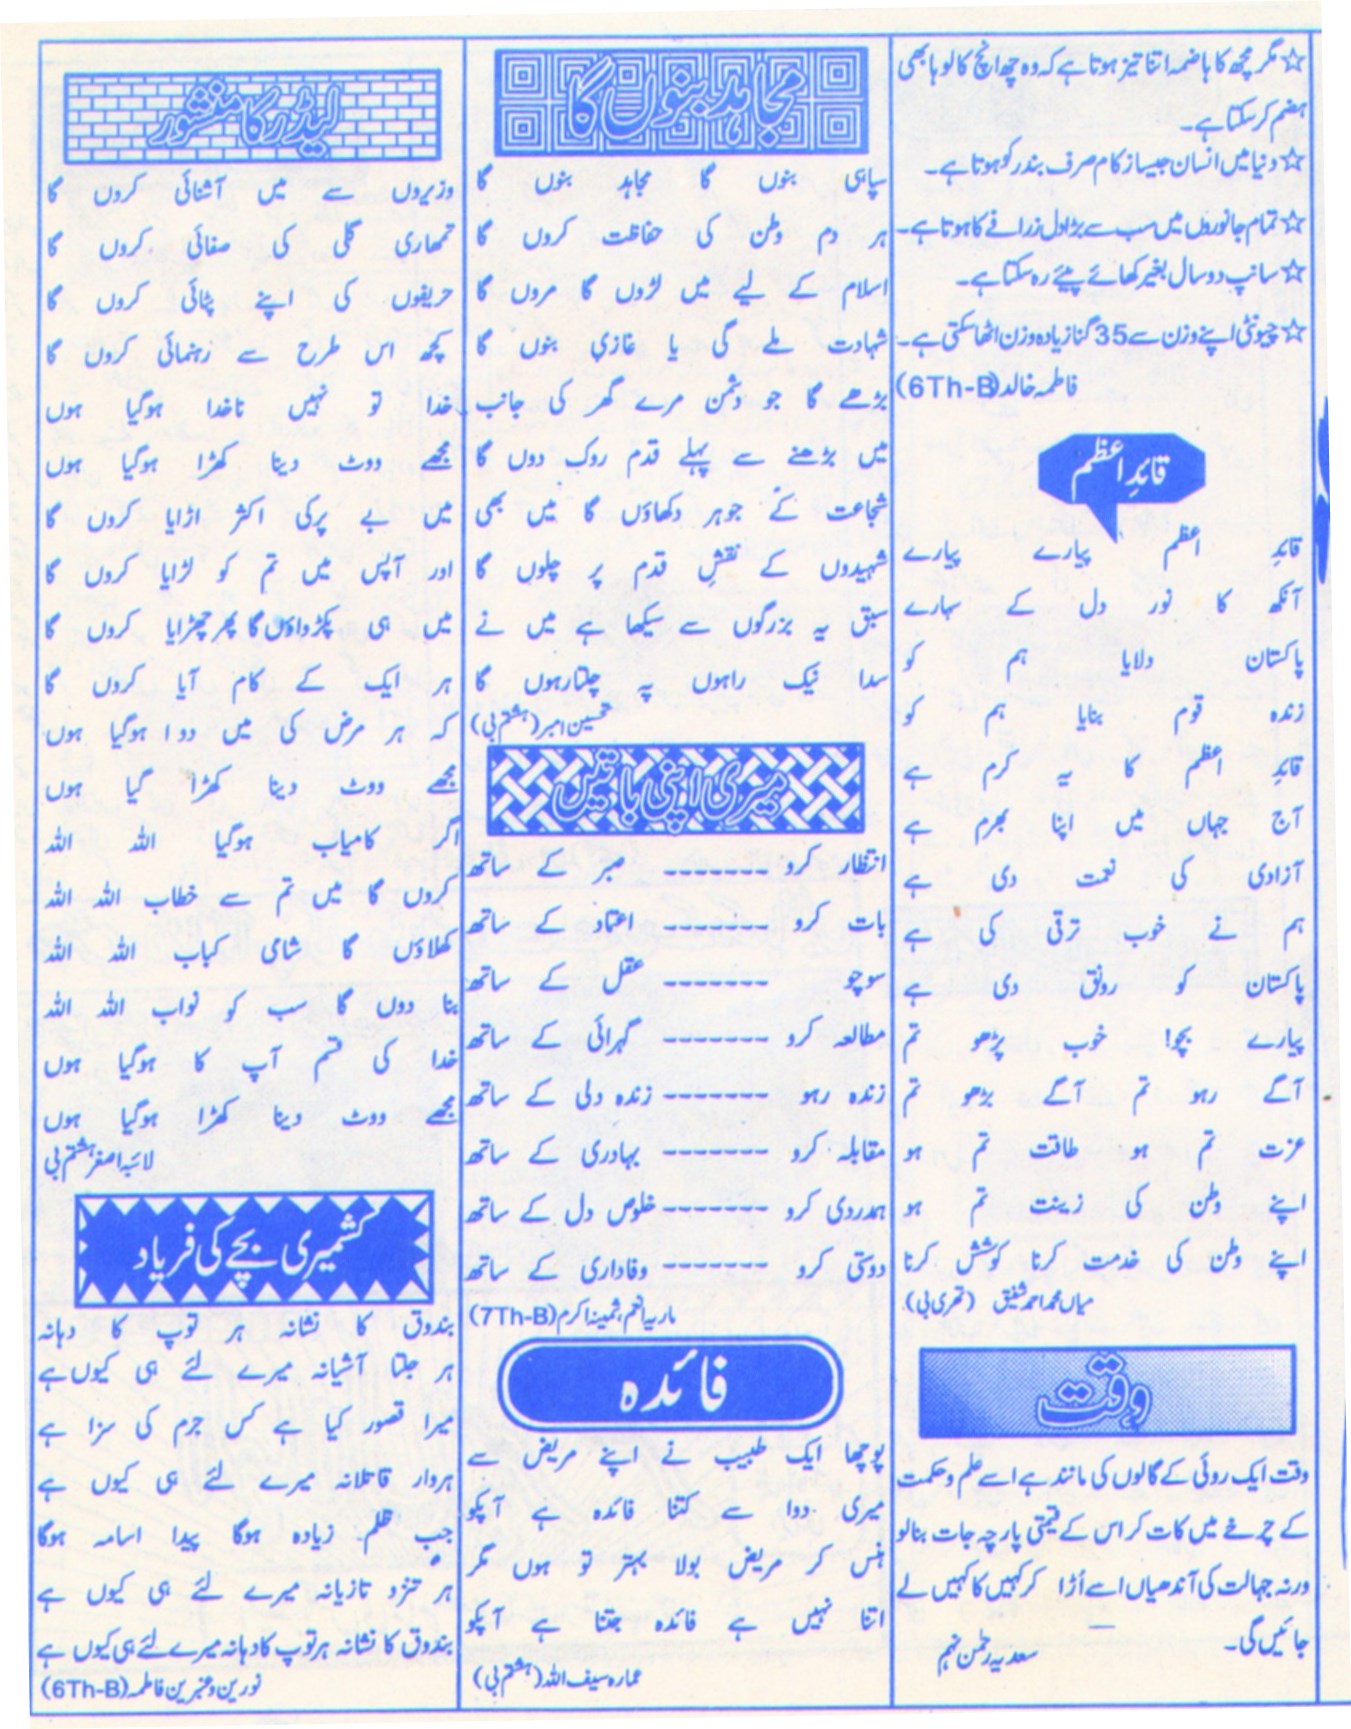 ☆ مگر مچھ کا ہاضمہ اتنا تیز ہوتا ہے کہ وہ چھ انچ کا لوہا بھی
ہضم کر سکتا ہے۔
☆ دنیا میں انسان جیسا زکام صرف بندر کو ہوتا ہے۔
☆ تمام جانوروں میں سب سے بڑا دل زرافے کا ہوتا ہے۔
☆ سانپ دو سال بغیر کھائے پیئے رہ سکتا ہے۔
☆ چیونٹی اپنے وزن سے 35 گنا زیادہ وزن اٹھا سکتی ہے۔
فاطمہ خالد (6Th-B)
قائدِ اعظم
قائدِ اعظم پیارے پیارے
آنکھ کا نور دل کے سہارے
پاکستان دلایا ہم کو
زندہ قوم بنایا ہم کو
قائدِ اعظم کا یہ کرم ہے
آج جہاں میں اپنا بھرم ہے
آزادی کی نعمت دی ہے
ہم نے خوب ترقی کی ہے
پاکستان کو رونق دی ہے
پیارے بچو! خوب پڑھو تم
آگے رہو تم آگے بڑھو تم
عزت تم ہو طاقت تم ہو
اپنے وطن کی زینت تم ہو
اپنے وطن کی خدمت کرنا کوشش کرنا
میاں محمد احمد شفیق (تھری بی)
وقت
وقت ایک روئی کے گالوں کی مانند ہے اسے علم و حکمت
کے چرخے میں کات کر اس کے قیمتی پارچہ جات بنالو
ورنہ جہالت کی آندھیاں اسے اُڑا کر کہیں کا کہیں لے
جائیں گی۔
سعدیہ رحمٰن نہم
مجاہد بنوں گا
سپاہی بنوں گا مجاہد بنوں گا
ہر دم وطن کی حفاظت کروں گا
اسلام کے لیے میں لڑوں گا مروں گا
شہادت ملے گی یا غازی بنوں گا
بڑھے گا جو دشمن مرے گھر کی جانب
میں بڑھنے سے پہلے قدم روک دوں گا
شجاعت کے جوہر دکھاؤں گا میں بھی
شہیدوں کے نقشِ قدم پر چلوں گا
سبق یہ بزرگوں سے سیکھا ہے میں نے
سدا نیک راہوں پہ چلتا رہوں گا
تحسین امبر (ہشتم بی)
میری اپنی باتیں
انتظار کرو -------- صبر کے ساتھ
بات کرو -------- اعتماد کے ساتھ
سوچو -------- عقل کے ساتھ
مطالعہ کرو -------- گہرائی کے ساتھ
زندہ رہو -------- زندہ دلی کے ساتھ
مقابلہ کرو -------- بہادری کے ساتھ
ہمدردی کرو -------- خلوص دل کے ساتھ
دوستی کرو -------- وفاداری کے ساتھ
ماریہ انجم، ثمینہ اکرم (7Th-B)
فائدہ
پوچھا ایک طبیب نے اپنے مریض سے
میری دوا سے کتنا فائدہ ہے آپکو
ہنس کر مریض بولا بہتر تو ہوں مگر
اتنا نہیں ہے فائدہ جتنا ہے آپکو
عمارہ سیف اللہ (ہشتم بی)
لیڈر کا منشور
وزیروں سے میں آشنائی کروں گا
تمھاری گلی کی صفائی کروں گا
حریفوں کی اپنے پٹائی کروں گا
کچھ اس طرح سے رہنمائی کروں گا
خدا تو نہیں ناخدا ہوگیا ہوں
مجھے ووٹ دینا کھڑا ہوگیا ہوں
میں بے پرکی اکثر اڑایا کروں گا
اور آپس میں تم کو لڑایا کروں گا
میں ہی پکڑواؤں گا پھر چھڑایا کروں گا
ہر ایک کے کام آیا کروں گا
کہ ہر مرض کی میں دوا ہوگیا ہوں
مجھے ووٹ دینا کھڑا گیا ہوں
اگر کامیاب ہوگیا اللہ اللہ
کروں گا میں تم سے خطاب اللہ اللہ
کھلاؤں گا شامی کباب اللہ اللہ
بنا دوں گا سب کو نواب اللہ اللہ
خدا کی قسم آپ کا ہوگیا ہوں
مجھے ووٹ دینا کھڑا ہوگیا ہوں
لائبہ اصغر ہشتم بی
کشمیری بچے کی فریاد
بندوق کا نشانہ ہر توپ کا دہانہ
ہر جلتا آشیانہ میرے لئے ہی کیوں ہے
میرا قصور کیا ہے کس جرم کی سزا ہے
ہروار قاتلانہ میرے لئے ہی کیوں ہے
جب ظلم زیادہ ہوگا پیدا اسامہ ہوگا
ہر تنزو تازیانہ میرے لئے ہی کیوں ہے
بندوق کا نشانہ ہر توپ کا دہانہ میرے لئے ہی کیوں ہے
نورین و عنبرین فاطمہ (6Th-B)